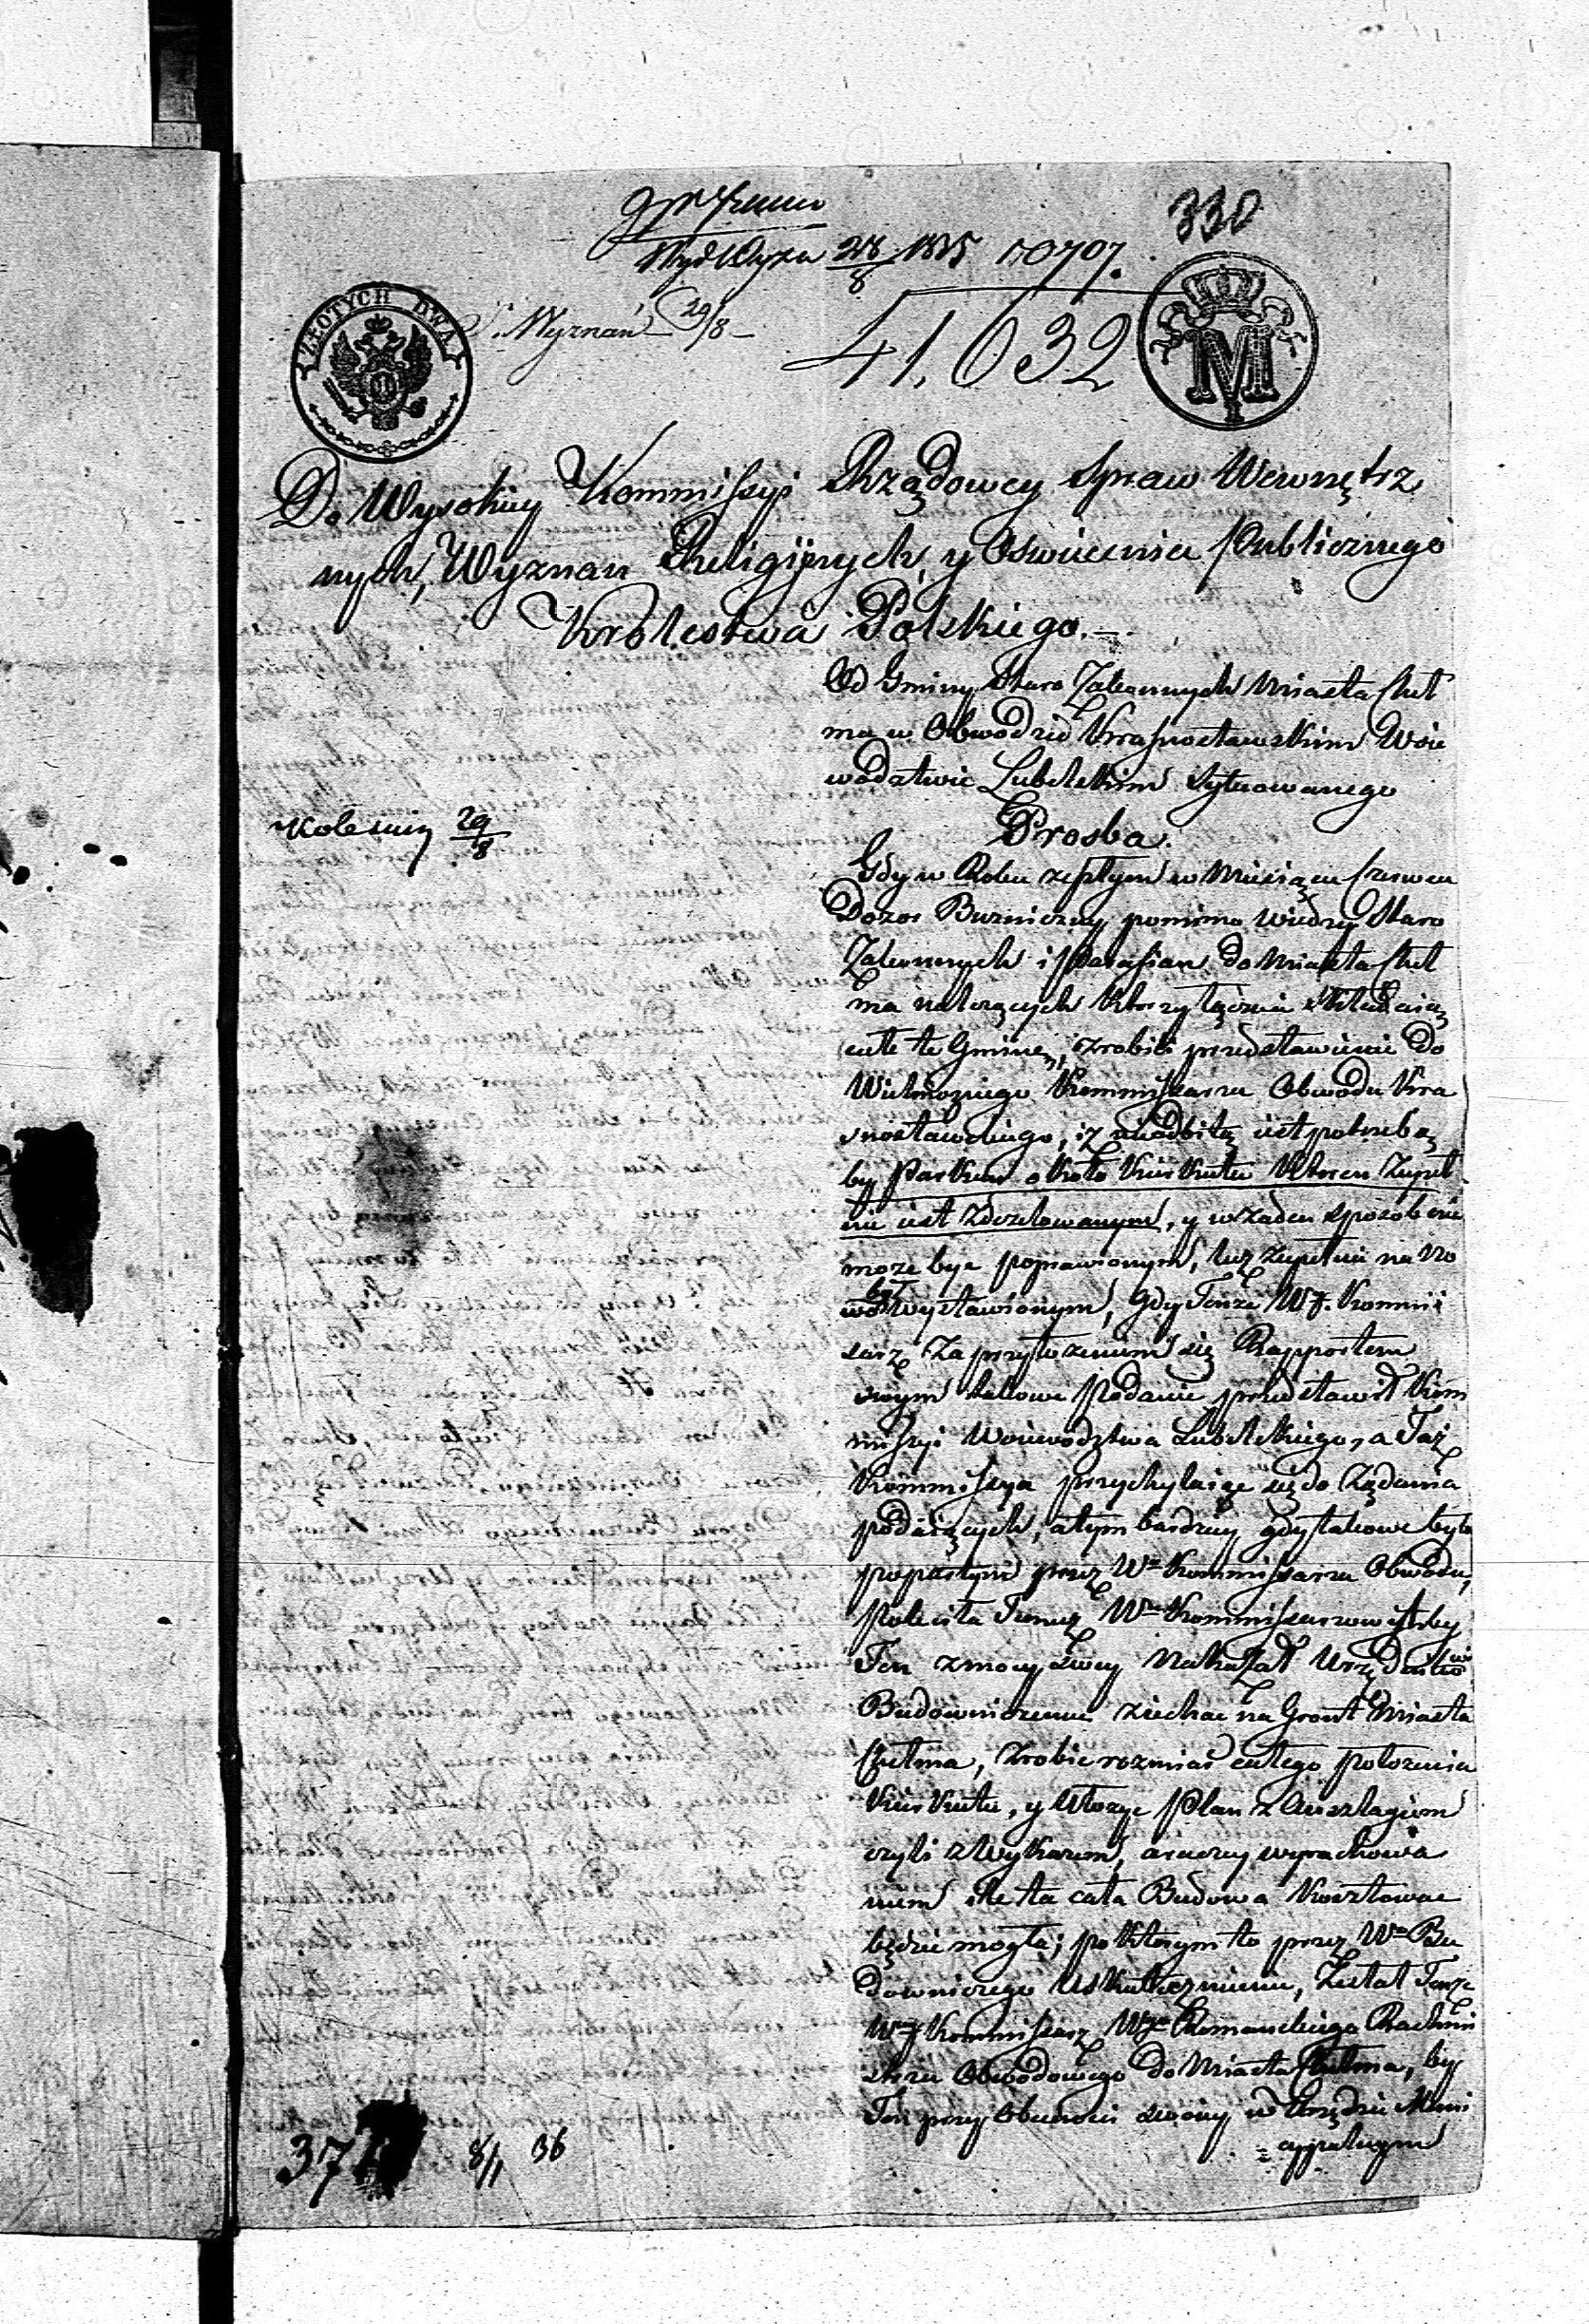 330
Wyd Wyzn 28/8 1835 10707.
Wyznań 29/8
41,632
ZŁOTYCH DWA
M
Do Wysokiey Kommissyi Rządowey Spraw Wewnętrz
nych, Wyznan Religijnych, y Oswiecenia Publicznego
Krolestwa Polskiego.
Od Gminy Staro Zakonnych Miasta Cheł
ma w Obwodzie Krasnostawskim Woie
wodztwie Lubelskim Sytuowanego
Kolesniy 29/8
Prosba.
Gdy w Roku zeszłym w Miesiącu Czerwcu
Dozor Buzniczny pomimo wiedzy Staro
Zakonnych i Parafian do Miasta Cheł
ma należących ktorzy łącznie składaią
całe te Gminę, zrobili przedstawienie do
Wielmoznego Kommissarza Obwodu Kra
snostawskiego, iz nieodbitą iest potrzebą
by Parkan około Kierkutu ktoren Zupeł
nie iest Zdezelowanym, y w żaden sposob nie
moze byc poprawionym, lecz zupełnie na no
wo był wystawionym, Gdy Tenże WJ. Kommi
sarz Za przyłozeniem się Rapportem
swym takowe podanie przedstawił Kom
missyi Woiewodztwa Lubelskiego, a Taż
Kommissya przychylaiąc się do Żądania
podaiących, a tym bardziey gdy takowe było
popartym przez Wo Kommissarza Obwodu,
poleciła Temuż Wu Kommissarzowi żeby
Ten z mocy swey Nakazał Urzędowo
Budowniczemu ziechac na Grunt Miasta
Chełma, zrobic rozmiar całego położenia
Kierkutu, y ułozyc Plan z Anszlagiem
czyli z Wykazem, a raczey wyrachowa
niem ile ta cała Budowa kosztowac
będzie mogła; po ktorym to przez Wo Bu
downiczego uskutecznieniu, Zesłał Tenże
WJ Kommissarz WJo Romanskiego Rachmi
strza Obwodowego do Miasta Chełma, by
Ten przy Obecności swoiey w Urzędzie Muni
cypalnym
37
8/1 36